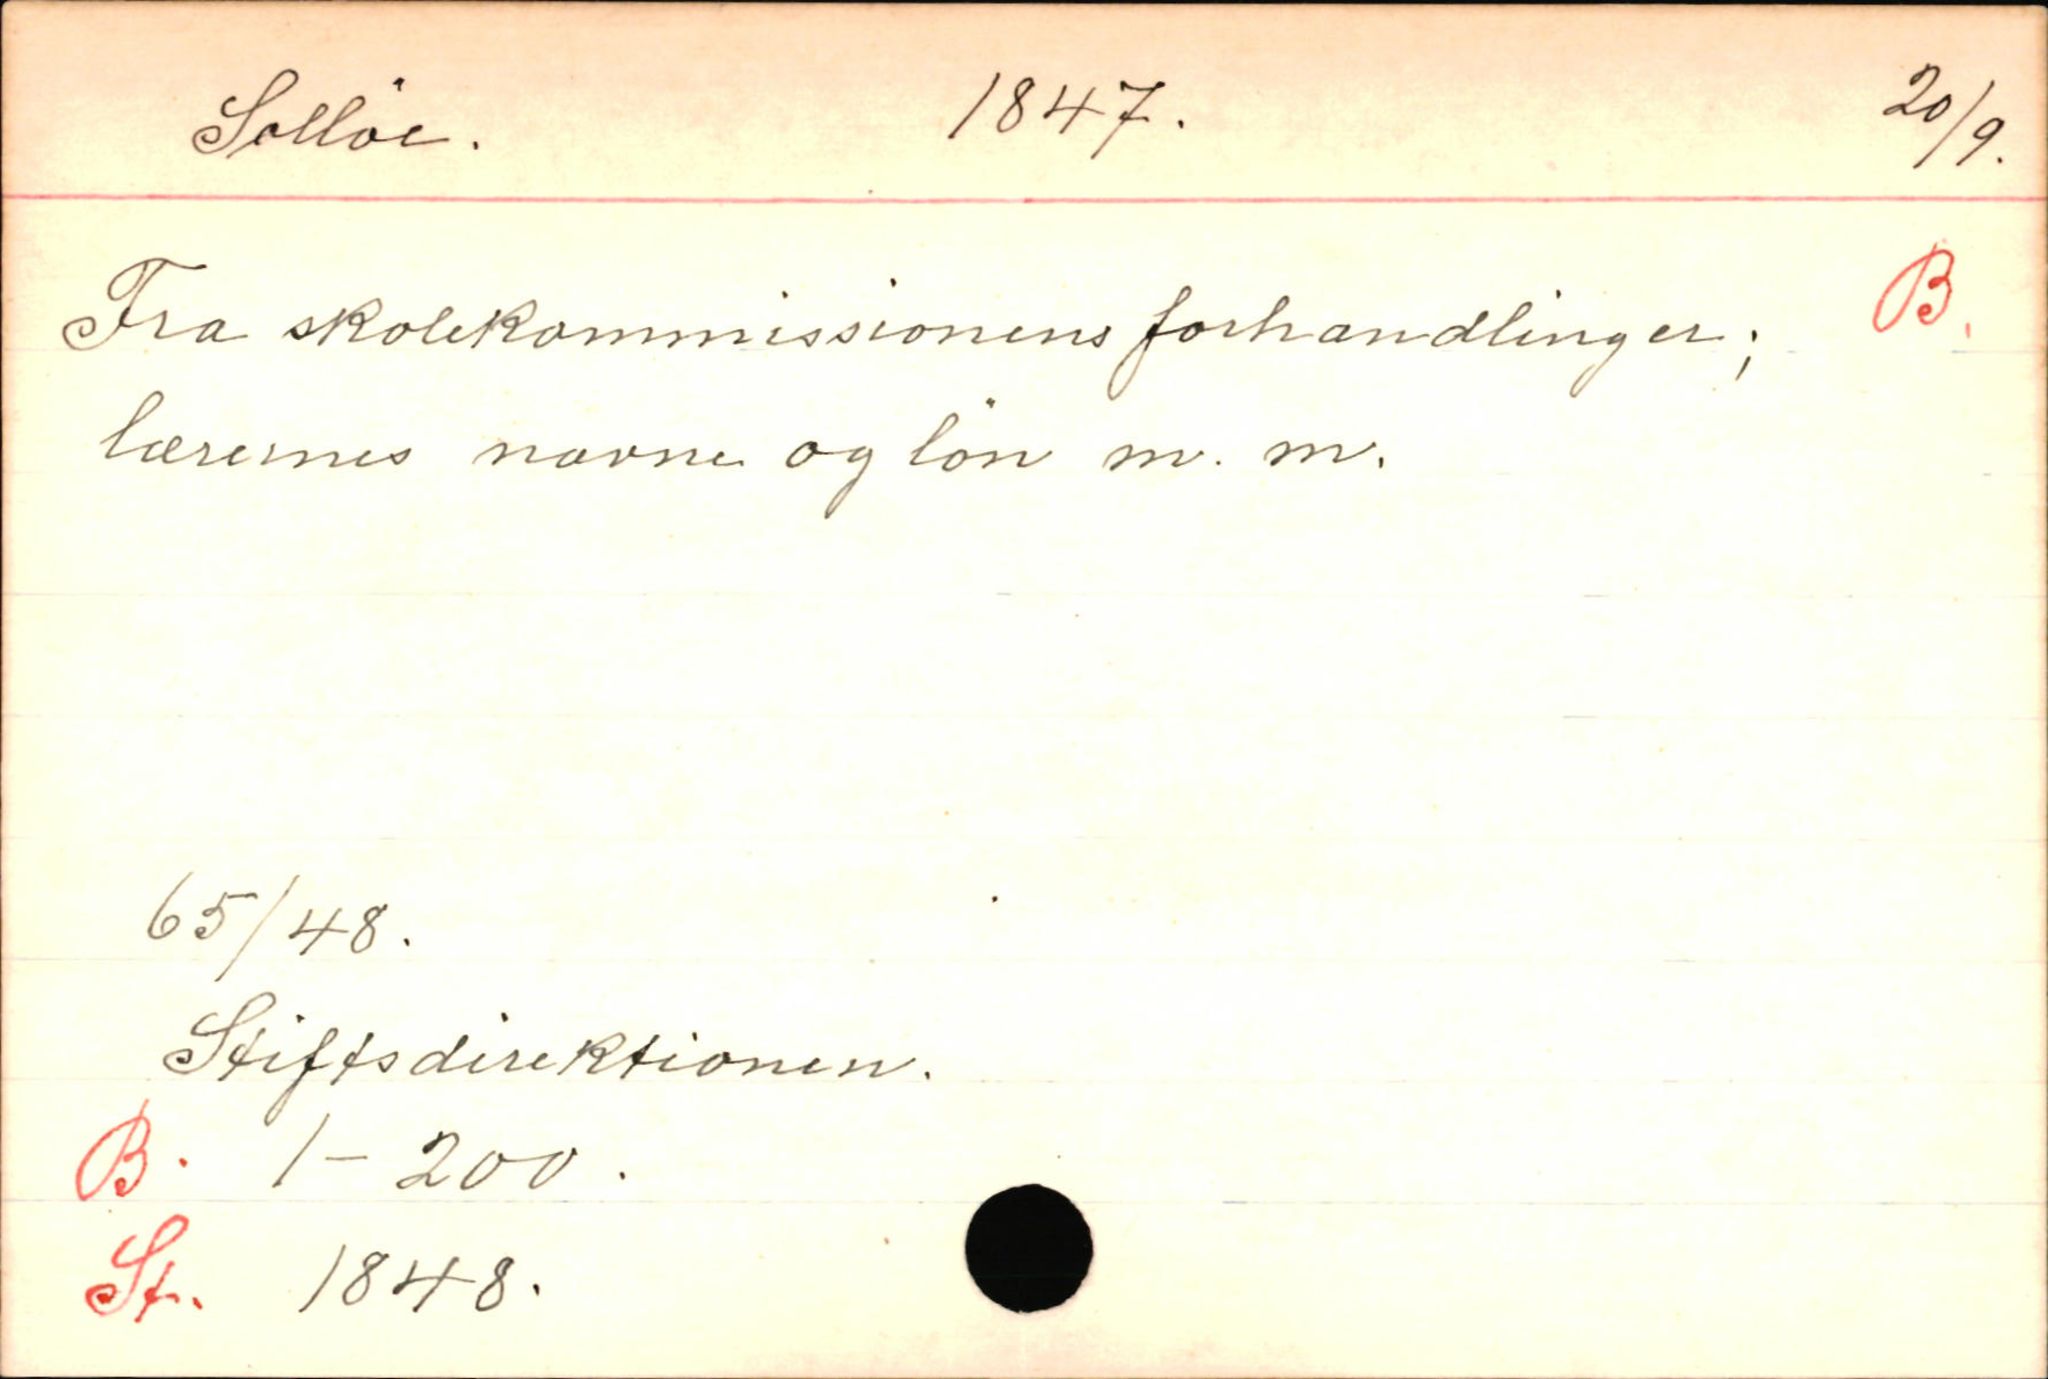 Solløe. 1847. 20/9.
Fra skolekommissionens forhandlinger; B.
lærernes navne og løn m. m.
65/48.
Stiftsdirektionen.
B. 1-200.
St. 1848.